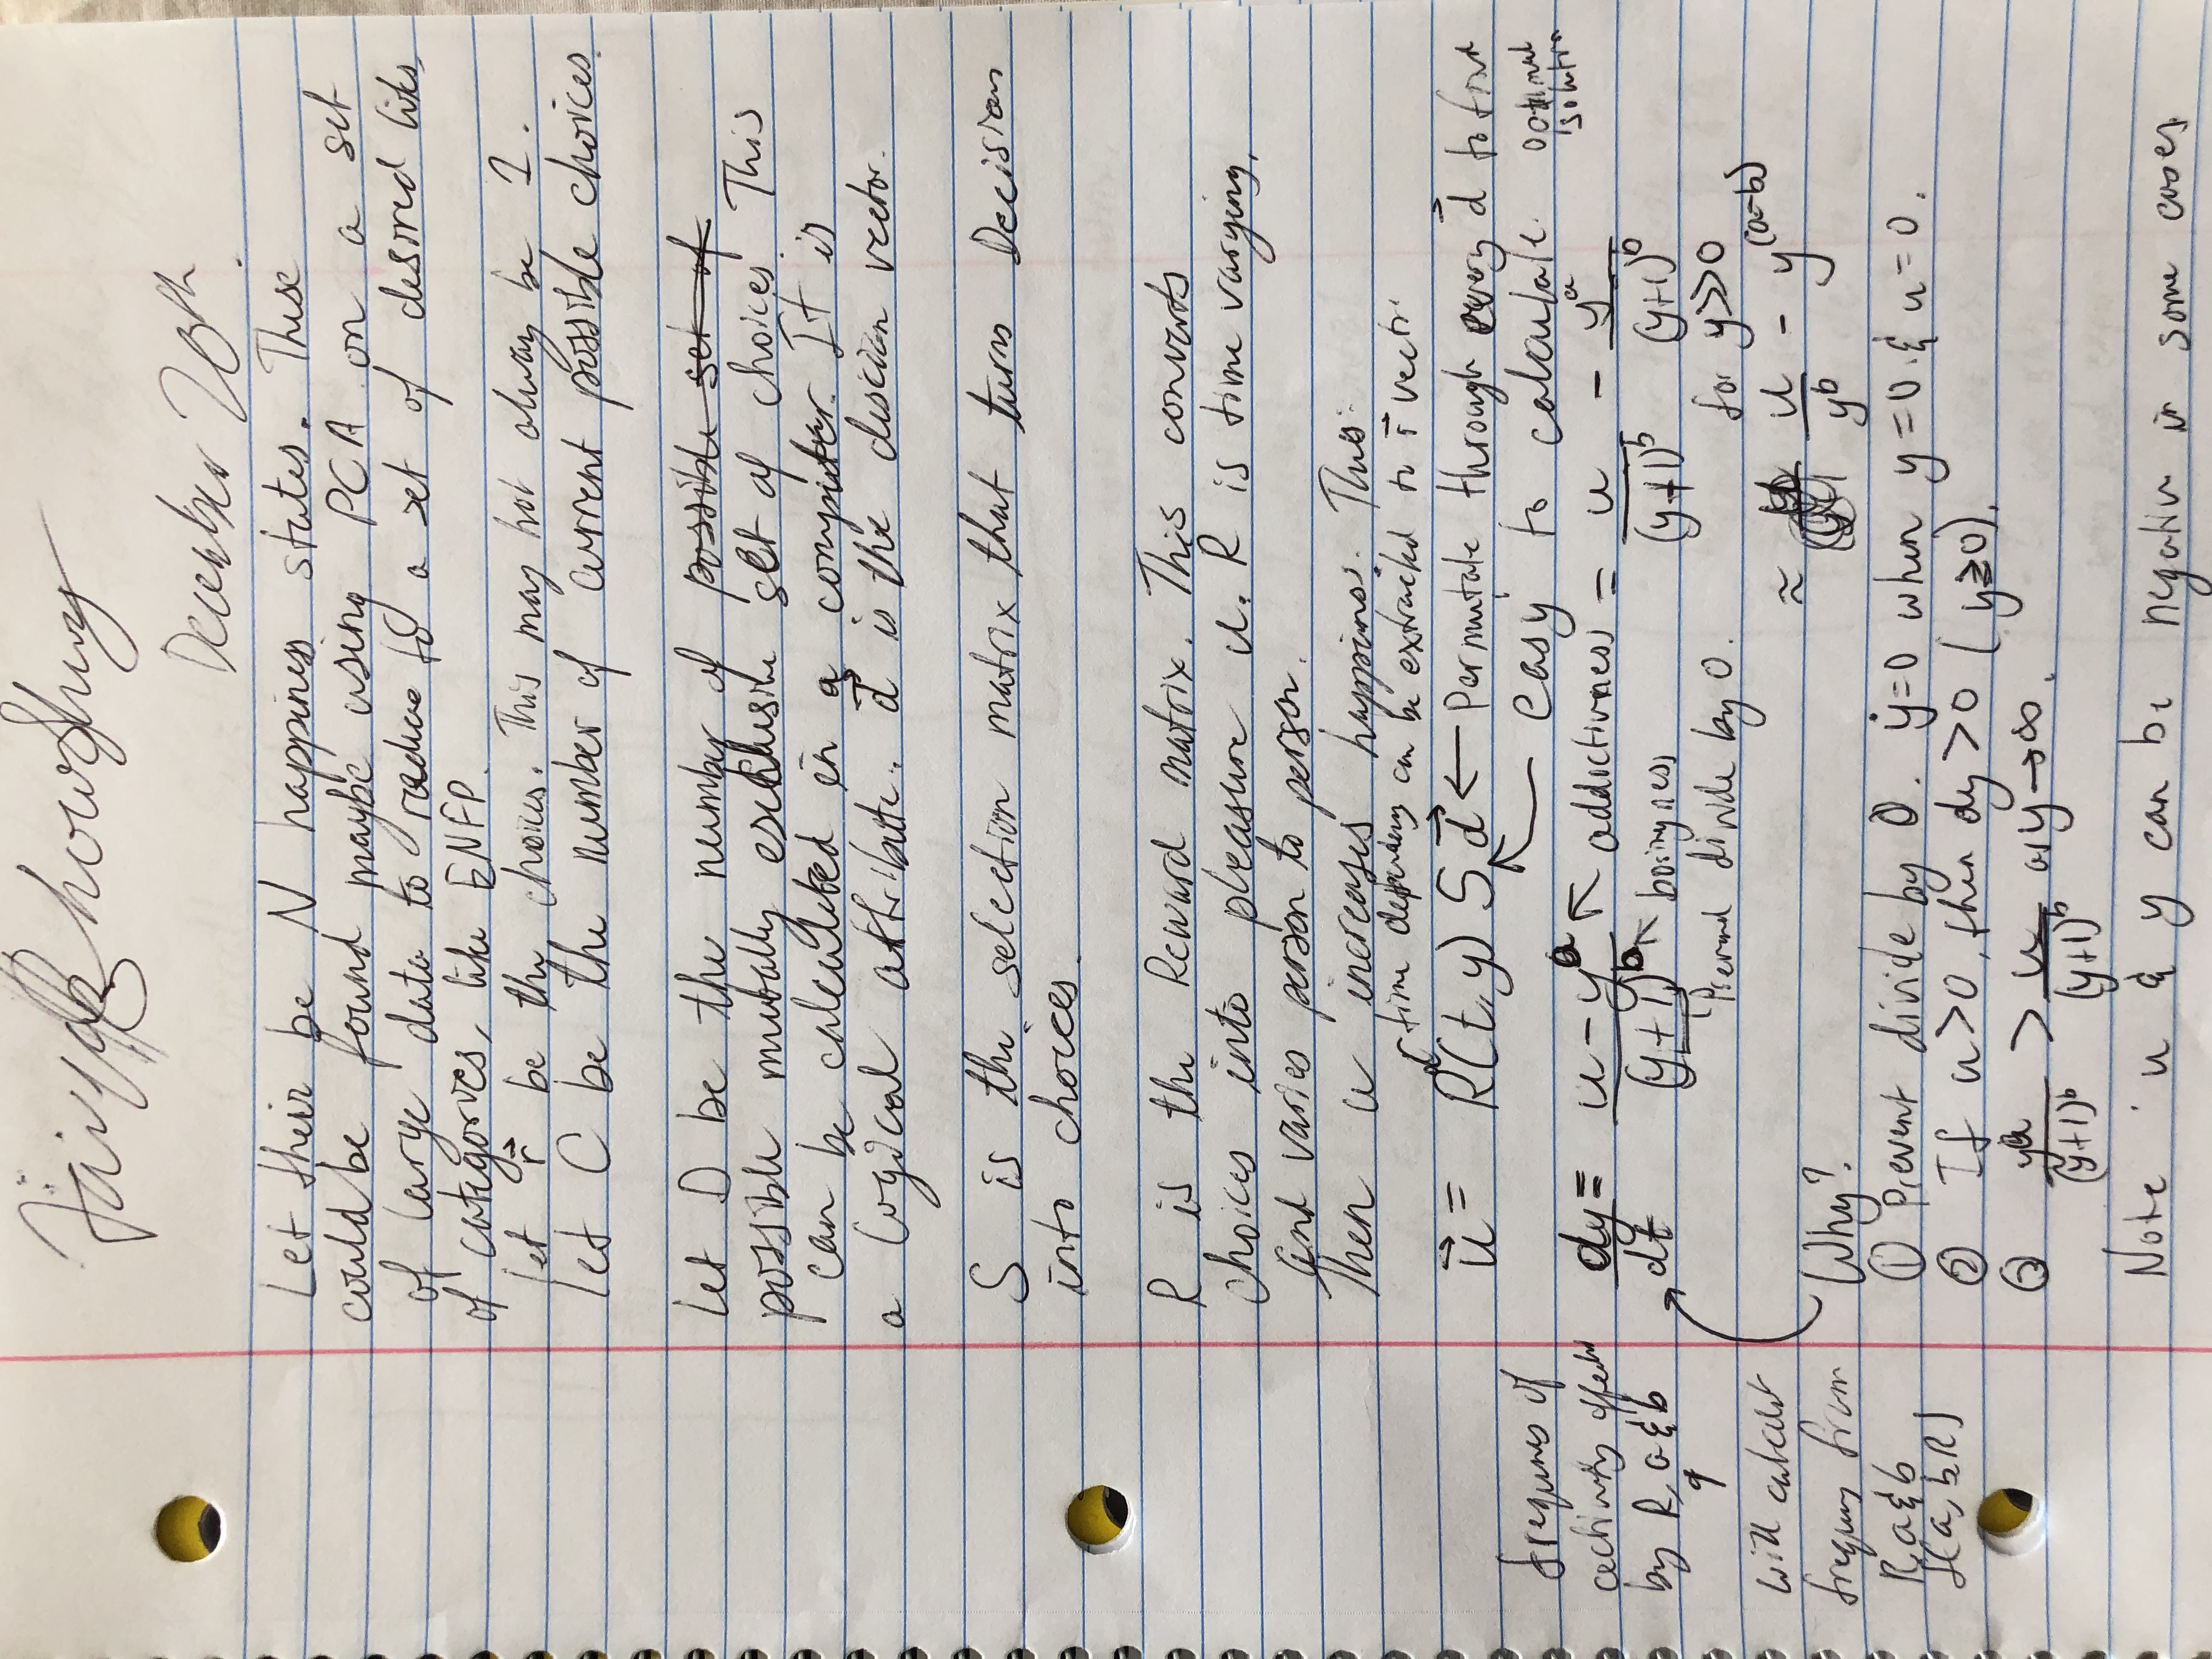 December 20th.
Let their be N happiness states. These
could be found maybe using PCA on a set
of large data to reduce to a set of desired
of categories, like ENFP.
Let r⃗ be the choices. This may not alway be 1.
Let C be the number of current possible choices.
Let D be the number of possible set of
possible mutally exclusive set of choices. This
can be calculated in a computer. It is
a logical attribute. d⃗ is the vector.
S is the selection matrix that turns Decisions
into choices.
R is the Reward matrix. This converts
choices into pleasure u. R is time varying,
and varies person to person.
Then u increases happiness. Thus:
time dependency can be extracted to r⃗ vector
u⃗ = R(t,y) S d⃗ ← Permutate through every d⃗ to find
optimal
solution
easy to calculate.
dy/dt = (u - y^a)/(y+1)^b = u/(y+1)^b - y^a/(y+1)^b
addictivness
boringness
Prevent divide by 0.
for y>>0
≈ u/y^b - y^(a-b)
of
by R, a & b
will
from
R, a & b
f(a, b, R)
Why?
① Prevent divide by 0. ẏ=0 when y=0 & u=0.
② If u>0, then dy>0 (y≥0).
③ y^a/(y+1)^b > u/(y+1)^b as y→∞.
Note u & y can be negative in some cases.